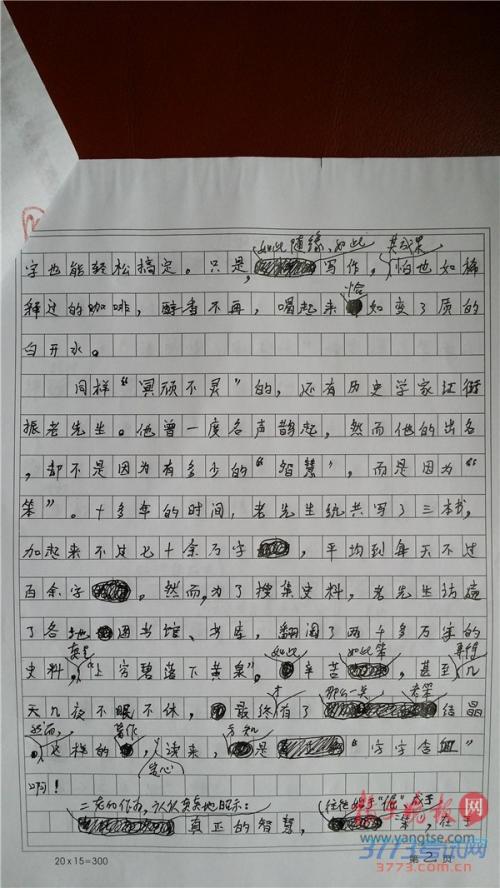 如此随缘、如此 其成果
字也能轻松搞定。只是, 写作,怕也如稀
释过的咖啡,醇香不再,喝起来恰如变了质的
白开水。
同样“冥顽不灵”的,还有历史学家江衍
振老先生。他曾一度名声鹊起,然而他的出名
,却不是因为有多少的“智慧”,而是因为“
笨”。十多年的时间,老先生统共写了三本书,
加起来不过七十余万字,平均到每天不过
百余字。然而,为了搜集史料,老先生访遍
了各地图书馆、书库,翻阅了两千多万字的
史料,真是“上穷碧落下黄泉”。如此辛苦如此笨,甚至几
天几夜不眠不休,才最终有了那么一点 结晶
然而,这样的著作,人读来,方知是“字字含血”
啊!
二友的作为,
真正的智慧,往往始于“掘”成于“笨”,在
20×15=300
第 2 页
www.yangtse.com
3773考试网
3773.com.cn